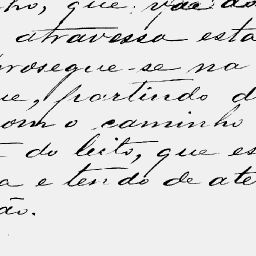 ho, que vae do
atravessa esta
prosegue-se na
ue, partindo d
om o caminho
do leito, que es
a e tendo de ate
ão.